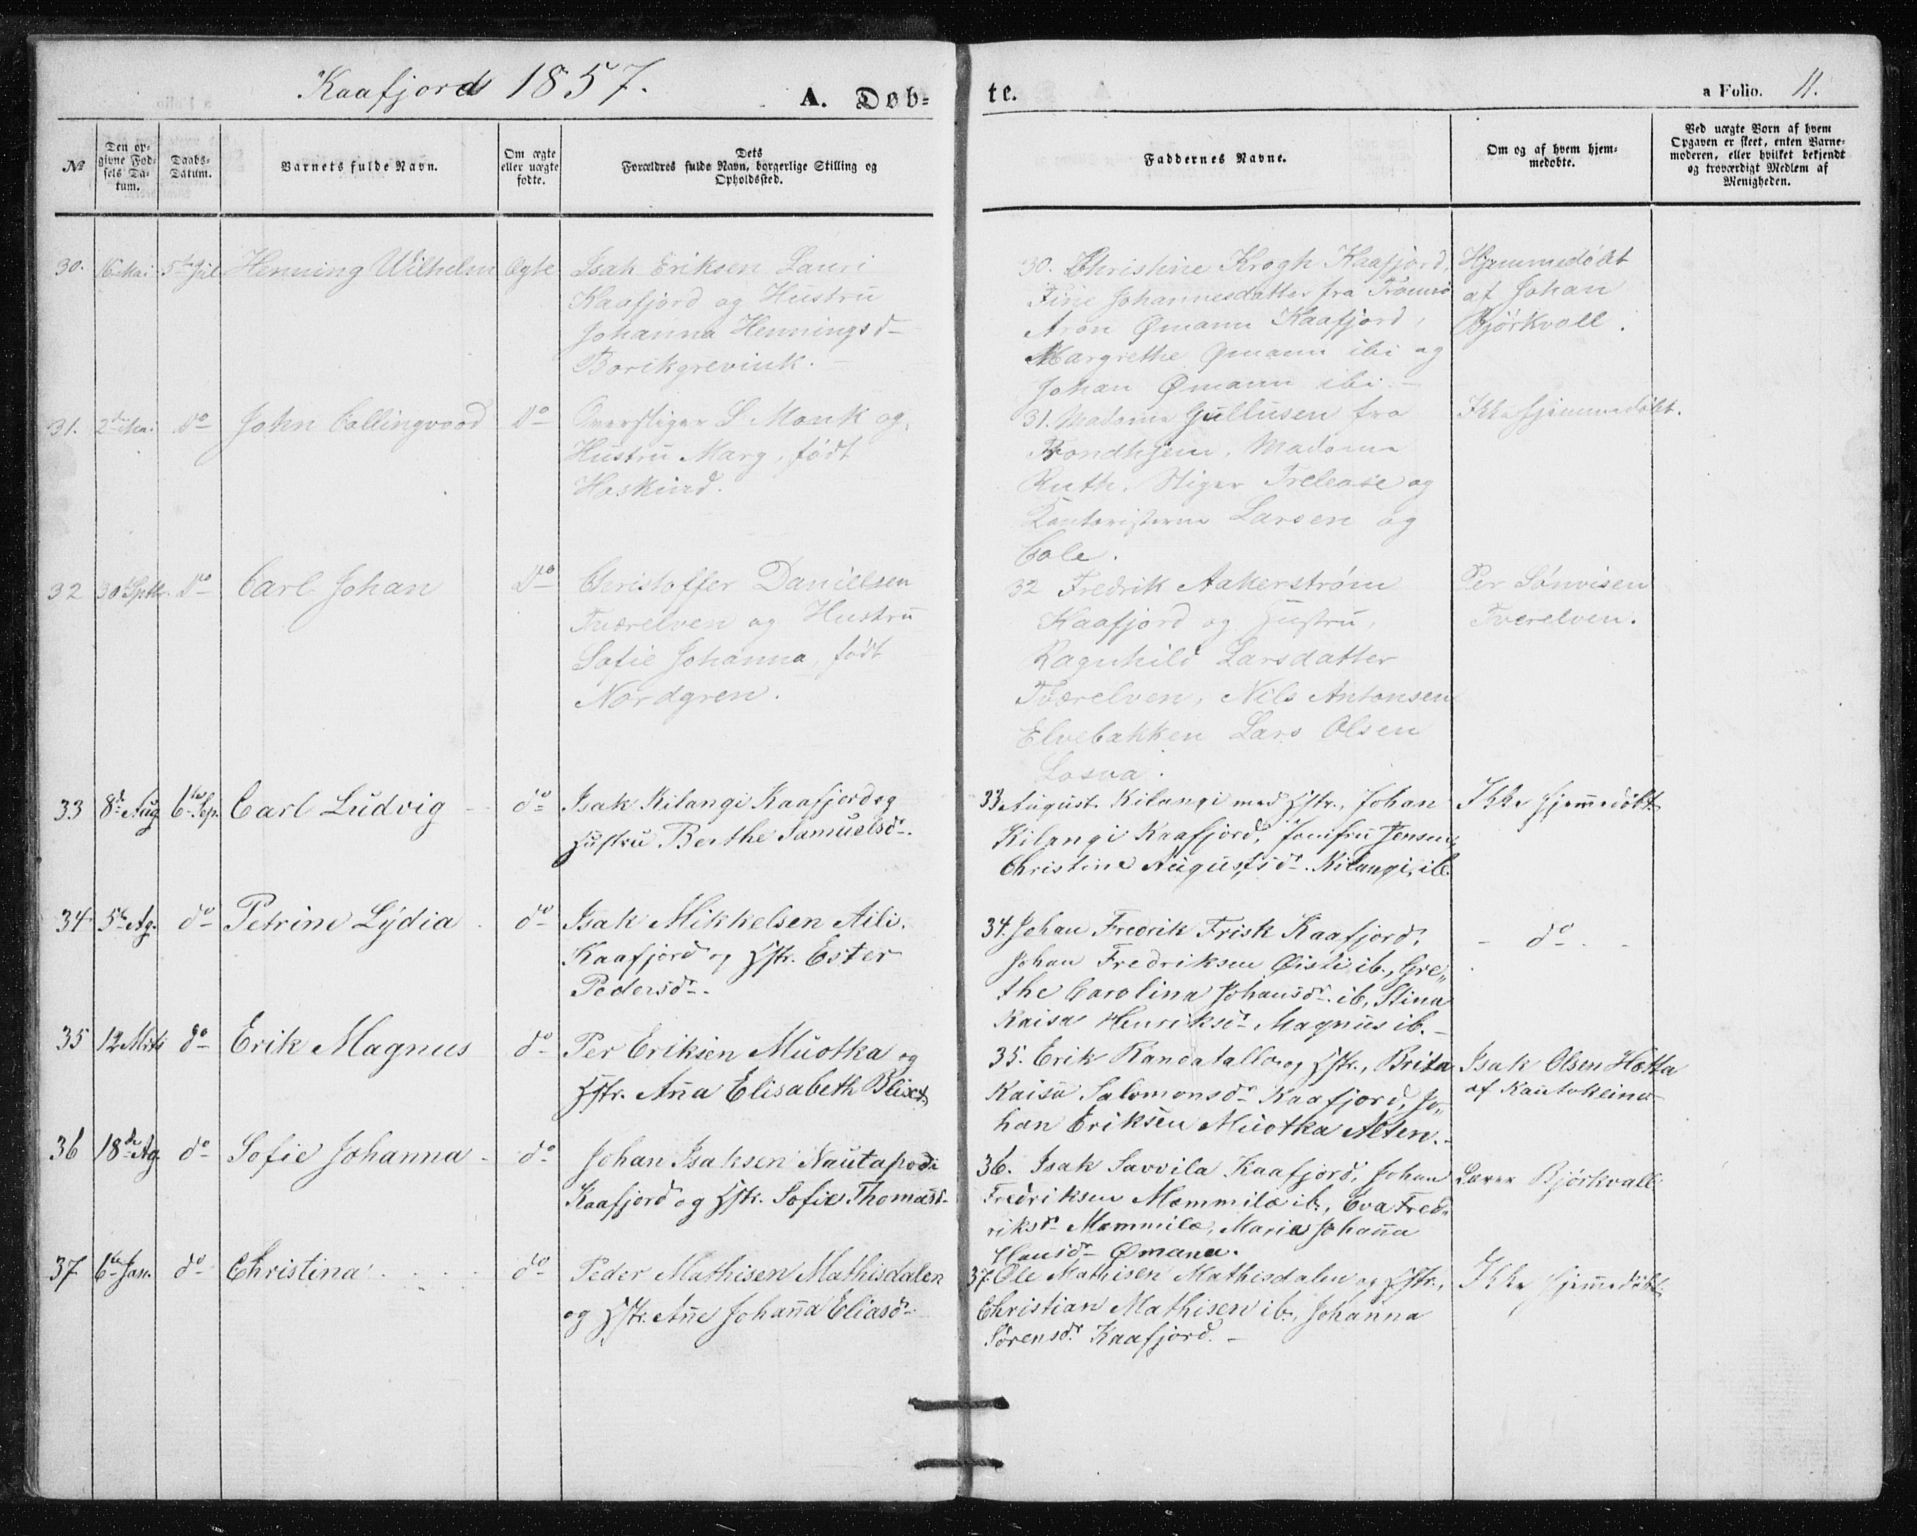 Kaafjords 1857.
A. Dobte.
a Folio. 11.
No
Den opgivne Fødsels Datum.
Daabs-Datum.
Barnets fulde Navn.
Om ægte eller uægte fødte.
Dets Forældres fulde Navn, borgerlige Stilling og Opholdssted.
Faddernes Navne.
Om og af hvem hjemmedøbte.
Ved uægte Børn af hvem Opgaven er skeet, enten Barnemoderen, eller hvilket bekjendt og troværdigt Medlem af Menigheden.
30. 16 Mai 5te Jul Henning Wilhelm Ægte
Isak Eriksen Lauri
Kaafjord og Hustru
Johanna Henningsd
Borikgrevink.
30. Christine Krogh Kaafjord,
Johannesdatter fra Tromsø
Aron Ømann Kaafjord,
Margrethe Ømann ibi og
Johan Ømann ibi.
Hjemmedøbt
af Johan
Bjørkvoll.
31. 2den Mai do John Collingvood do
Overstiger S Monk og
Hustru Marg. født
Hoskind.
31. Madame Gullusen fra
Trondhjem, Madame
Ruth, Stiger Trelease og
Kontoristerne Larsen og
Cole.
Ikke hjemmedøbt.
32 30 Septb. do Carl Johan do
Christoffer Danielsen
Tværelven og Hustru
Sofie Johanna, født
Nordgren.
32 Fredrik Aakerstrøm
Kaafjord og Hustru,
Ragnhild Larsdatter
Tværelven, Nils Antonsen
Elvebakken Lars Olsen
Losva.
Per Sønvisen
Tverelven.
33 8de Aug 6te Sep. Carl Ludvig do
Isak Kilangi Kaafjord og
Hustru Berthe Samuelsdr.
33. August Kilangi med Hstr., Johan
Kilangi Kaafjord, Jomfru Jensen,
Christine Augustsdr. Kilangi, ib.
Ikke hjemedøbt
34 5te Ag. do Petrine Lydia do
Isak Mikkelsen Aili.
Kaafjord og Hstr. Ester
Pedersdr.
34. Johan Fredrik Frisk Kaafjord,
Johan Fredriksen Øisti ib., Gre-
the Carolina Johansdr. ib, Stina
Kaisa Henriksdr Magnus ib.
do
35 12 Mts do Erik Magnus do
Per Eriksen Muotka og
Hstr. Ana Elisabeth Blixt
35. Erik Randatalla og Hstr., Brita
Kaisa Salomonsdr Kaafjord, Jo-
han Eriksen Muotka Alten.
Isak Olsen Hætta
af Kautokeino
36 18de Ag. do Sofie Johanna do
Johan Isaksen Nautapodi
Kaafjord og Hstr. Sofie Thomasd
36. Isak Savvila Kaafjord, Johan
Fredriksen Mommila ib., Eva Fred-
riksdr Mommila, Maria Johana
Hansdr Ømana.
Lærer Bjørkvall
37 6te Jan. do Christina do
Peder Mathisen Mathisdalen
og Hstr. Ane Johana Eliasdr
37. Ole Mathisen Mathisdalen og Hstr.,
Christian Mathisen ib., Johanna
Sørensdr. Kaafjord.
Ikke hjemedøbt